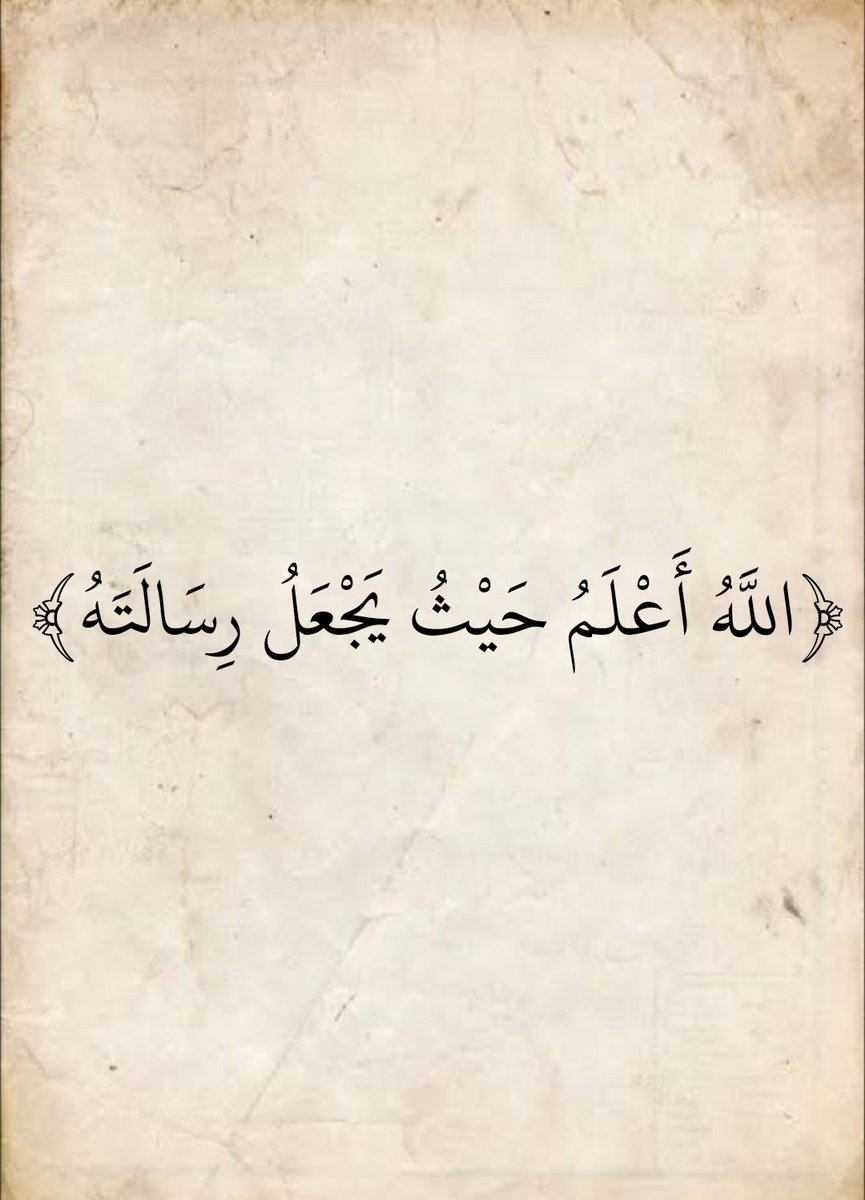 ﴿اللَّهُ أَعْلَمُ حَيْثُ يَجْعَلُ رِسَالَتَهُ﴾